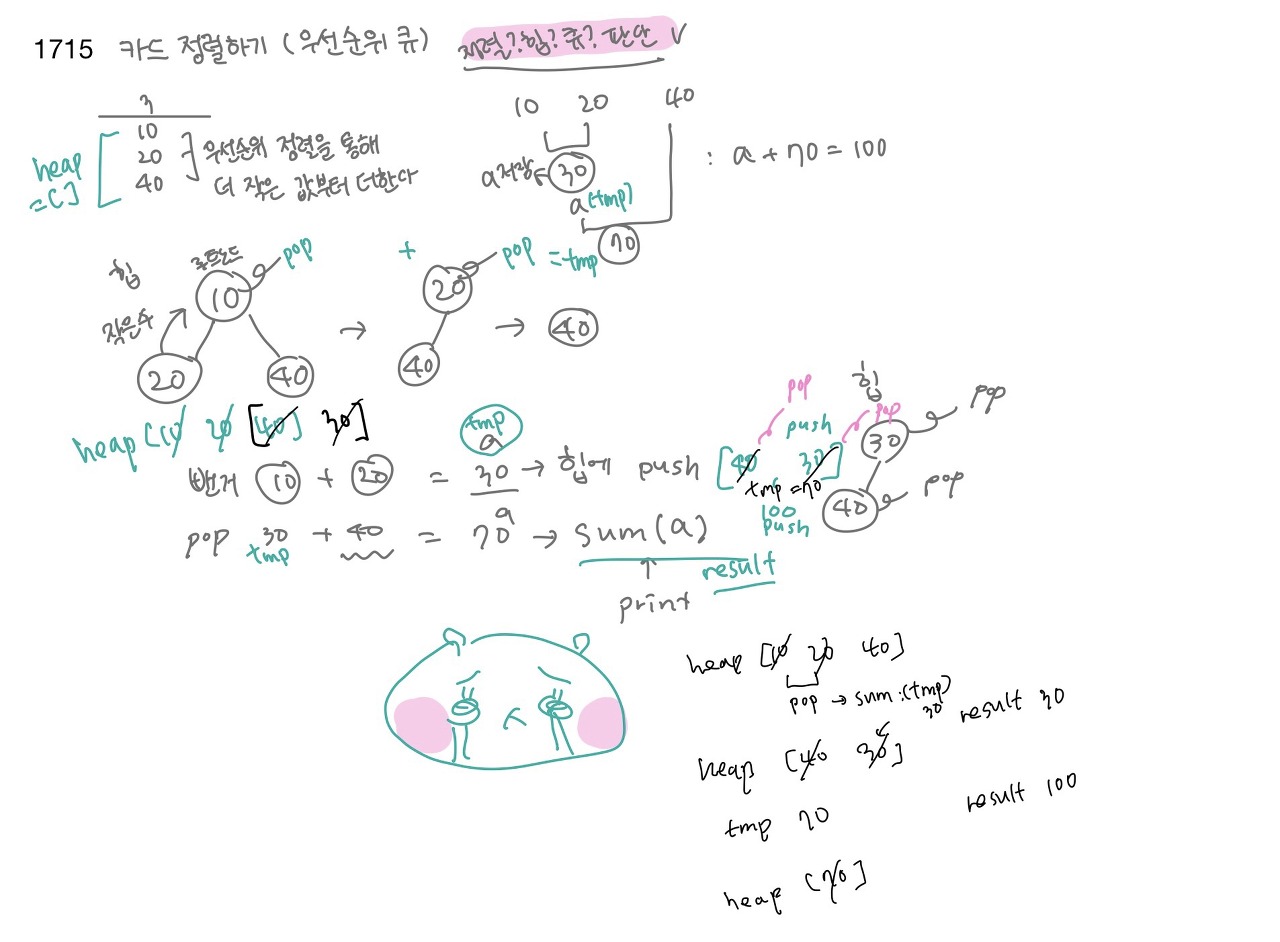 1715 카드 정렬하기 (우선순위 큐) 정렬? 힙? 큐? 판단 V
3
10
20
40
heap
= [ ]
우선순위 정렬을 통해
더 작은 값부터 더한다
10 20 40
a저장
30
a (tmp)
70
: a + 70 = 100
힙
루트노드
pop
10
작은수
20 40
→
+
20
pop = tmp
40
→ 40
heap [10 20 [40] 30]
tmp
a
뺀거 10 + 20 = 30 → 힙에 push
pop 30 + 40 = 70 → sum(a)
tmp
a
result
↑
print
pop
push
pop
[40 30]
tmp = 70
100
push
힙
30
pop
40
pop
heap [10 20 40]
pop → sum:(tmp)
30
result 30
heap [40 30]
tmp 70
result 100
heap [70]